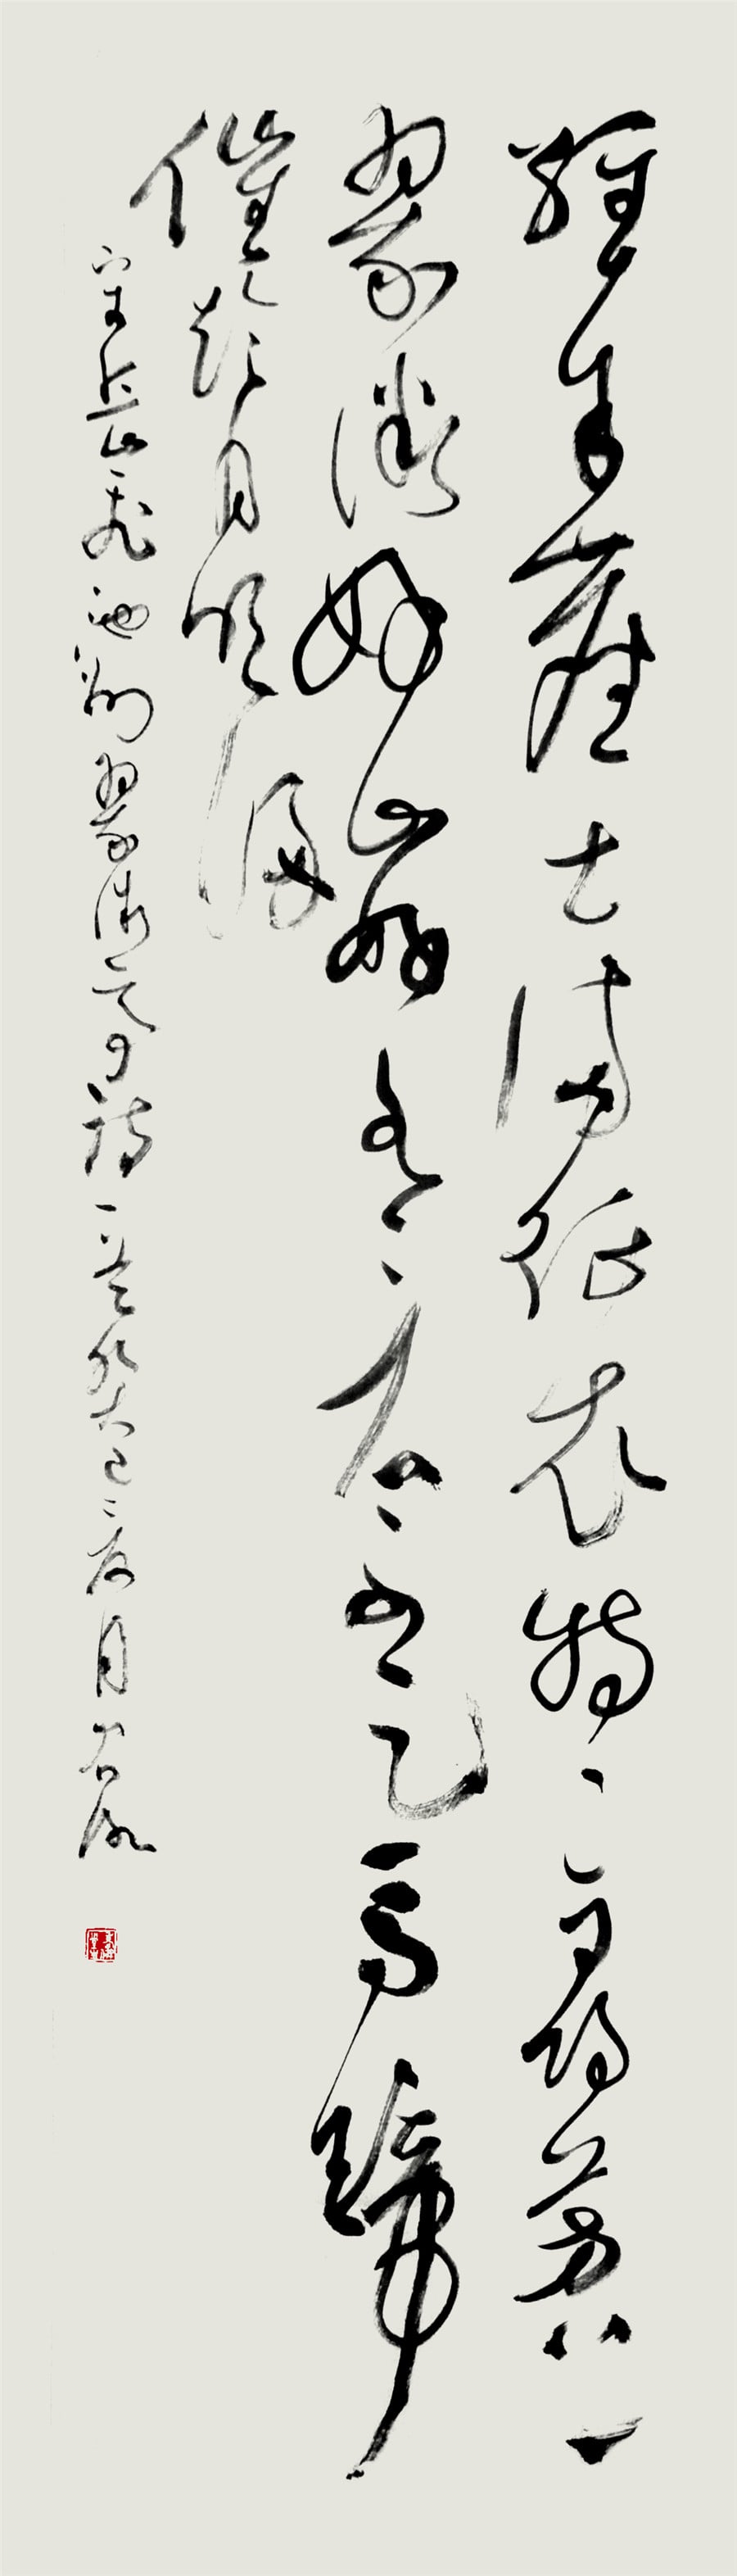 經年塵土滿征衣特特尋芳上
翠微好山好水看不足馬蹄
催趁月明歸
宋岳飛池州翠微亭詩一首癸巳夏月